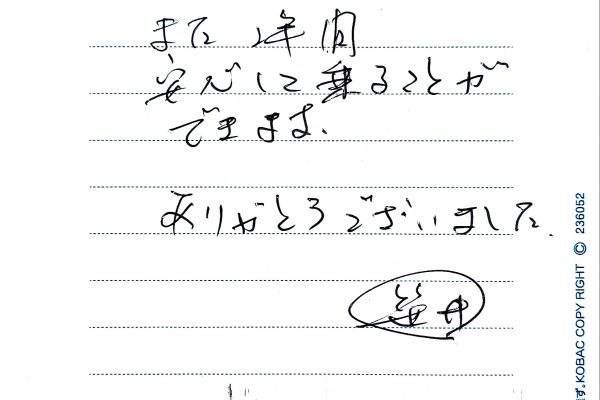 また2年間
安心して乗ることが
できます.
ありがとうございました.
す。KOBAC COPY RIGHT © 236052